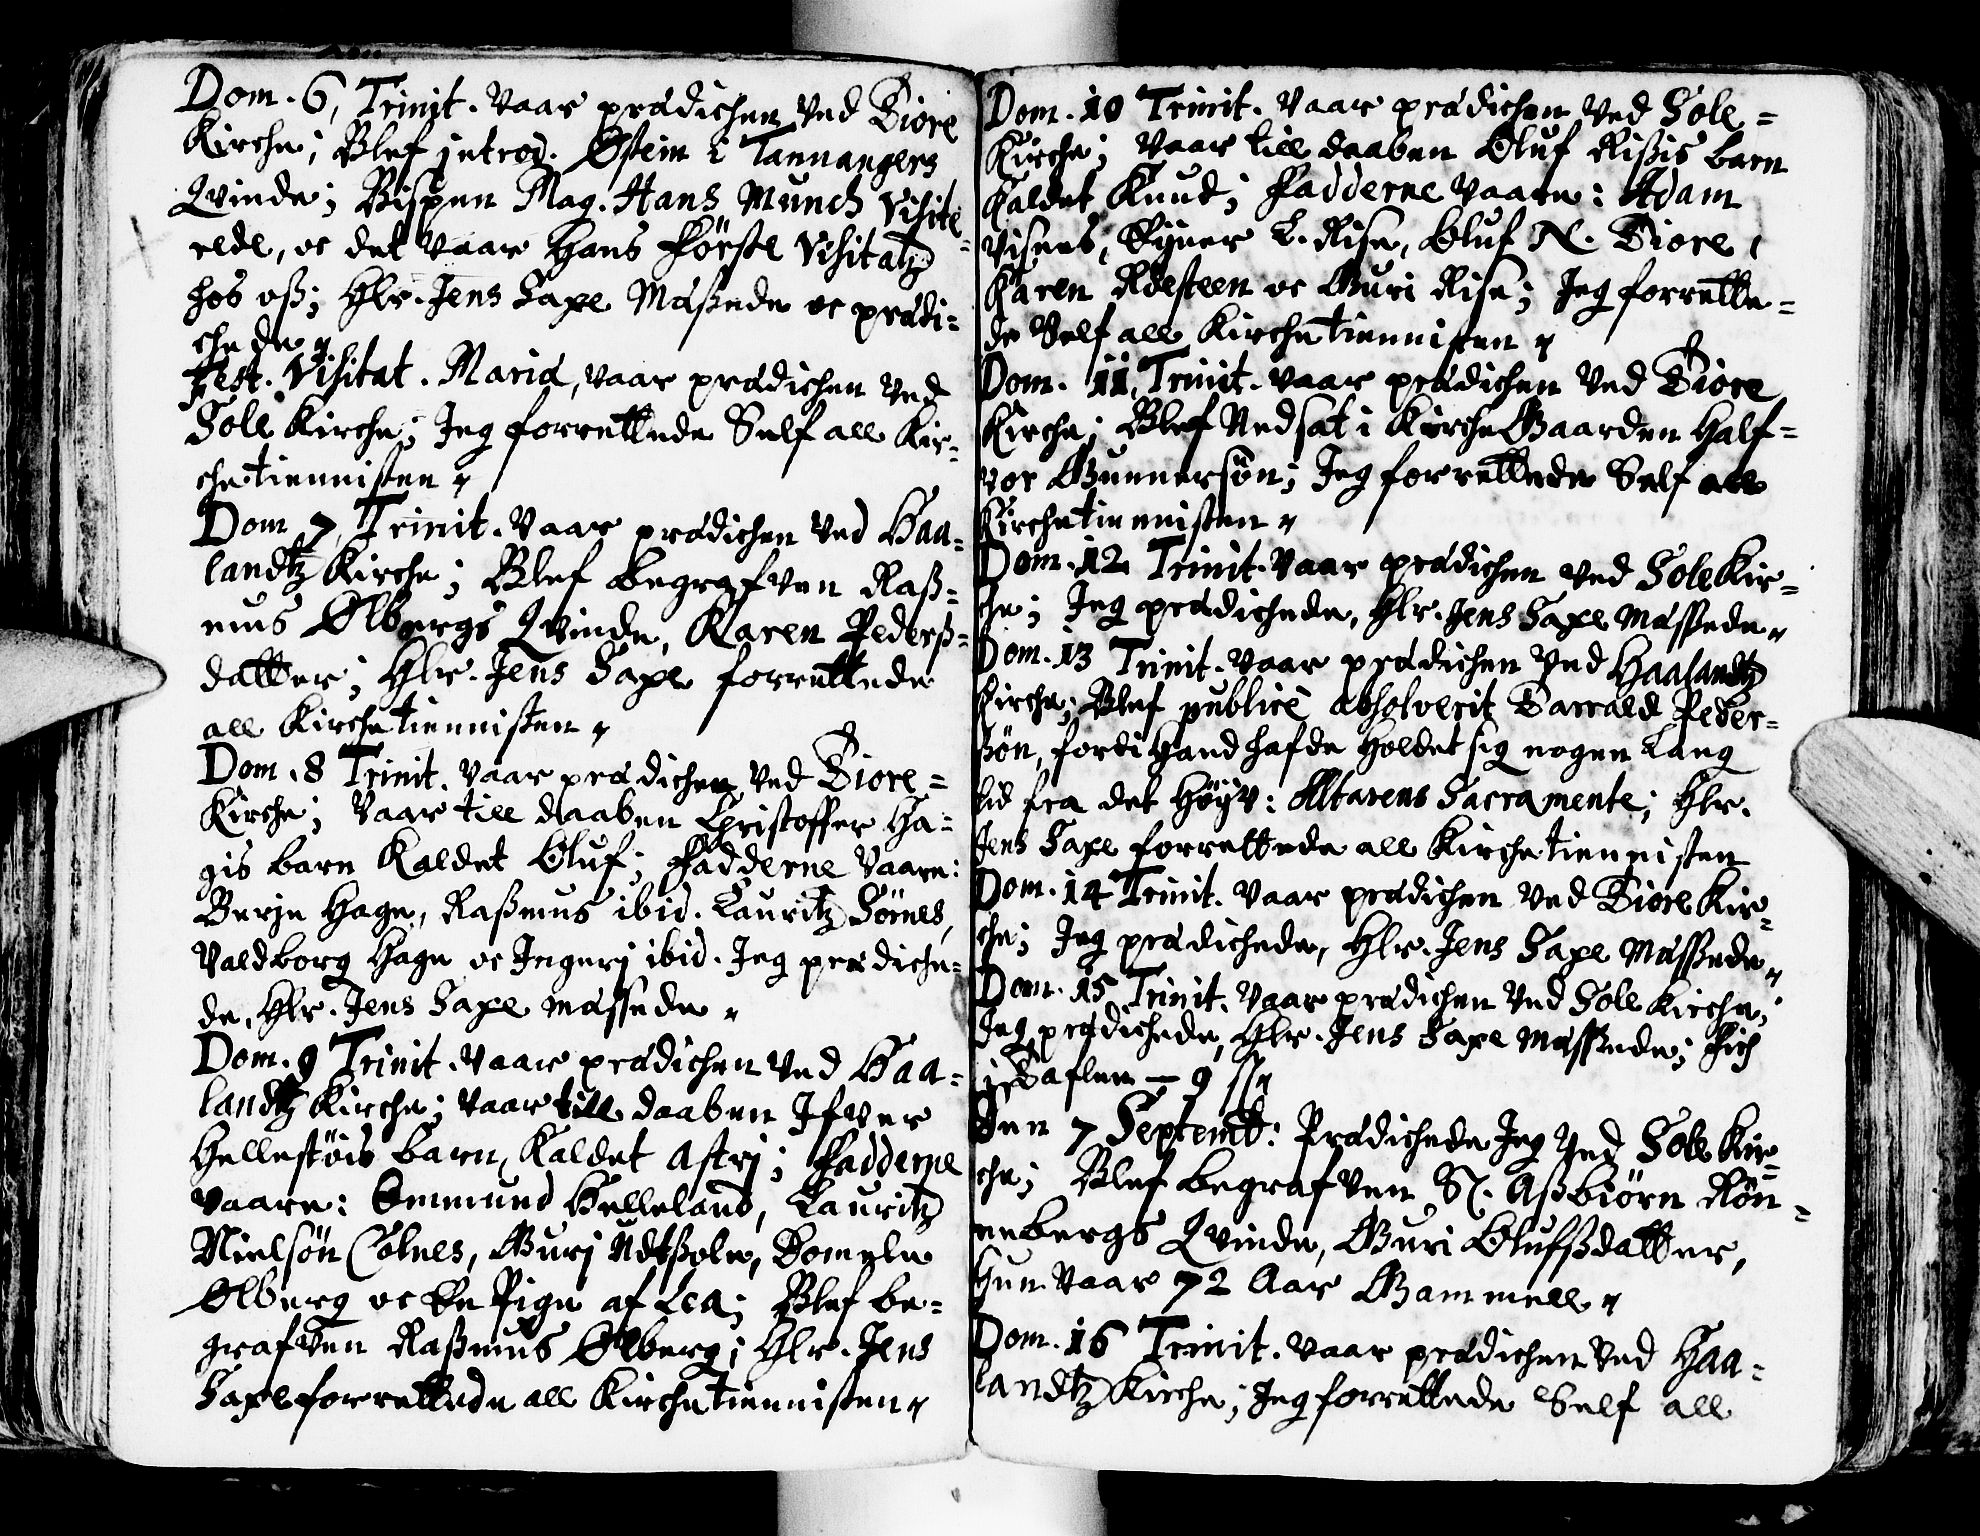 Dom. 6, Trinit. vaar prædichen ved Tiore
Kirche; Blef introd. Østein i Tannangers
Qvinde; Bispen Mag. Hans Munch Visite-
rede, oc det vaar hans förste Visitatz
hos oß; Hlr. Jens Saxe Maßede oc prædi-
chede
Fest. Visitat. Mariæ, vaar prædichen ved
Sole Kirche; Jeg forrettede Self all Kir-
chetiennisten
Dom. 7, Trinit. vaar prædichen ved Haa-
landtz Kirche; Blef begrafven Raß-
mus Ølbergs Qvinde, Karen Pederß-
datter; Hlr. Jens Saxe forrettede
all Kirchetiennisten
Dom. 8 Trinit. vaar prædichen ved Tiore-
Kirche; vaar till daaben Christoffer Ha-
gis barn Kaldet Oluf; Fadderne vaare:
Berje Hage, Raßmus ibid. Lauritz Sömes,
Valdborg Hage oc Ingerj ibid. Jeg prædiche-
de, Hlr. Jens Saxe massede
Dom. 9 Trinit. vaar prædichen ved Haa-
landtz Kirche; vaar till daaben Ifver
Hellestöis barn, Kaldet Astrj; Fadderne
vaare: Emmund Helleland, Lauritz
Nielsön Colnes, Gurj Udtßole, Bomele
Ølberg oc En Pige af Lea; Blef be-
grafven Raßmus Ølberg; Hlr. Jens
Saxe forrettede all Kirchetiennisten
Dom. 10 Trinit. vaar prædichen ved Sole-
Kirche; vaar till daaben Oluf Rißis barn
Kaldet Knud; Fadderne vaare: Adam
Visnes, Ejner L. Rise, Oluf N. Tiore,
Karen Roesteen oc Guri Rise; Jeg forrette-
de Self all Kirchetiennisten
Dom. 11, Trinit. vaar prædichen ved Tiore
Kirche; Blef Nedsat i KircheGaarden Half-
vor Gunnersön; Jeg forrettede Self all
Kirchetiennisten
Dom. 12 Trinit. vaar prædichen ved Sole Kir-
che; Jeg prædichede, Hlr. Jens Saxe Massede
Dom. 13 Trinit. vaar prædichen ved Haalandtz
Kirche; Blef publicè absolverit Tarrald Peder-
ßön, fordi Hand hafde Holdet sig nogen Lang
tid fra det Höyv: Altarens Sacramente; Hlr.
Jens Saxe forrettede all Kirchetiennisten
Dom. 14 Trinit. vaar prædichen ved Tiore Kir-
che; Jeg prædichede, Hlr. Jens Saxe Massede
Dom. 15 Trinit. vaar prædichen ved Sole Kirche;
Jeg prædichede, Hlr. Jens Saxe Massede; Fich
i Taflen — 9 ss
Den 7 Septemb: Prædichede Jeg ved Sole Kir-
che; Blef begrafven S. Aßbiörn Rön-
nebergs Qvinde, Guri Olufßdatter,
Hun vaar 72 Aar Gammell
Dom. 16 Trinit. vaar prædichen ved Haa-
landtz Kirche; Jeg forrettede Self all